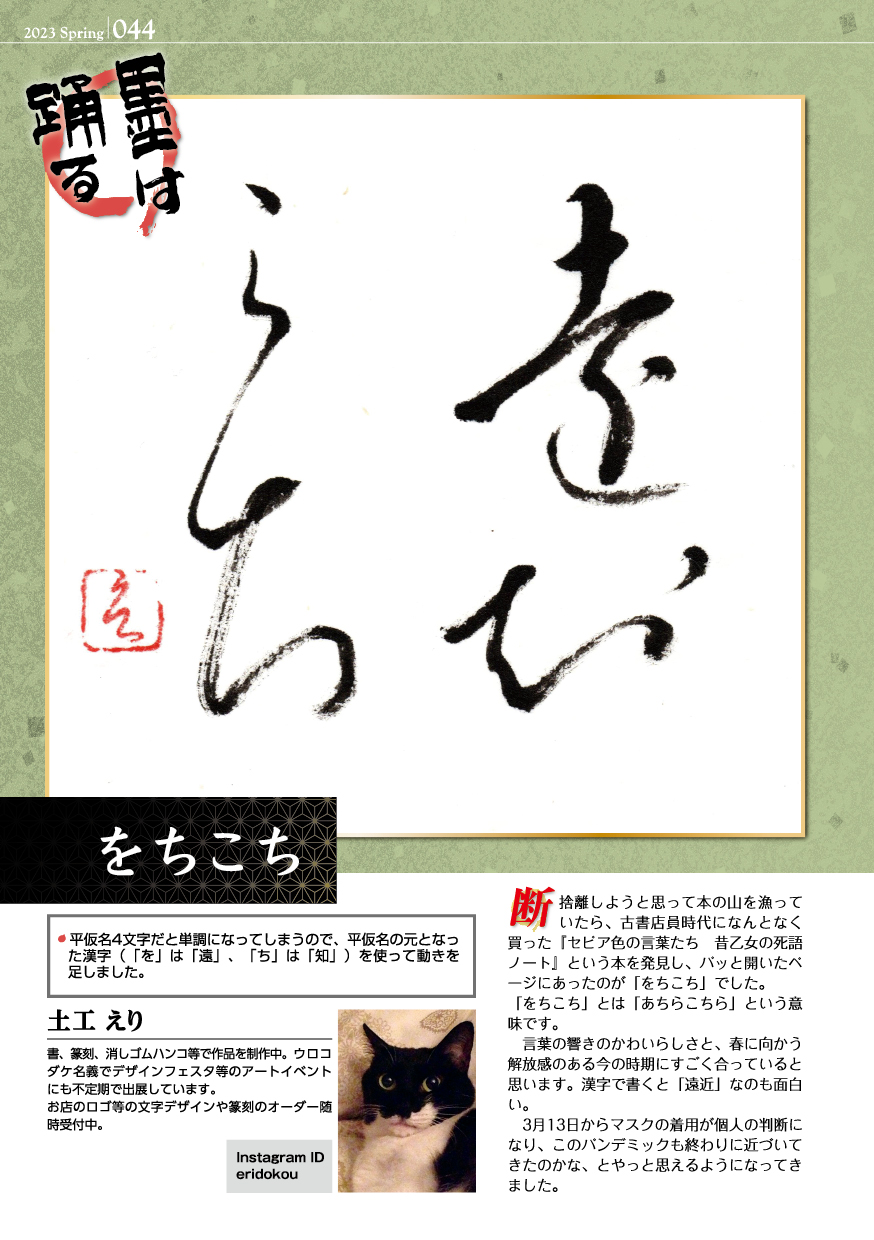 2023 Spring 044
墨は
踊る
遠知
こち
をちこち
●平仮名4文字だと単調になってしまうので、平仮名の元となっ
た漢字(「を」は「遠」、「ち」は「知」)を使って動きを
足しました。
土工 えり
書、篆刻、消しゴムハンコ等で作品を制作中。ウロコ
ダケ名義でデザインフェスタ等のアートイベント
にも不定期で出展しています。
お店のロゴ等の文字デザインや篆刻のオーダー随
時受付中。
Instagram ID
eridokou
断捨離しようと思って本の山を漁って
いたら、古書店員時代になんとなく
買った『セピア色の言葉たち 昔乙女の死語
ノート』という本を発見し、パッと開いたペ
ージにあったのが「をちこち」でした。
「をちこち」とは「あちらこちら」という意
味です。
言葉の響きのかわいらしさと、春に向かう
解放感のある今の時期にすごく合っていると
思います。漢字で書くと「遠近」なのも面白
い。
3月13日からマスクの着用が個人の判断に
なり、このパンデミックも終わりに近づいて
きたのかな、とやっと思えるようになってき
ました。